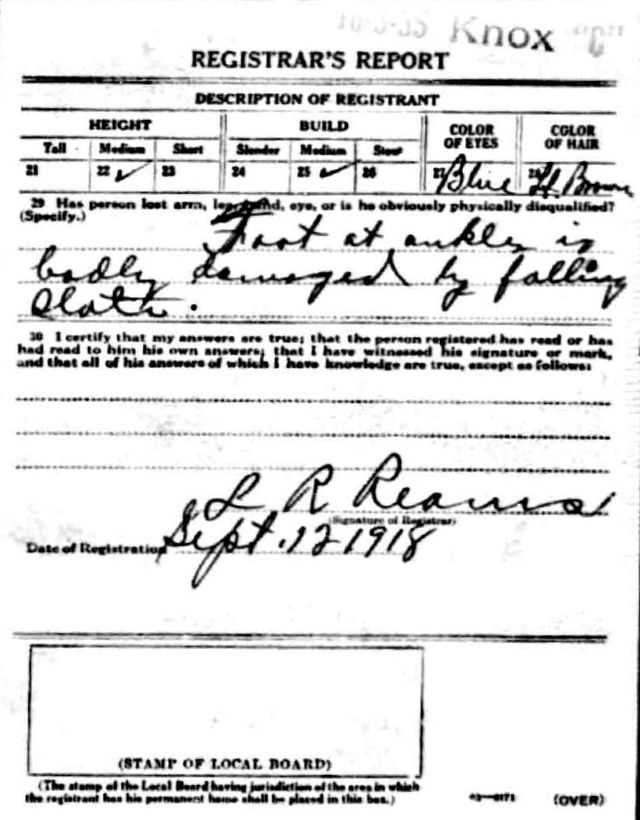 Knox
REGISTRAR'S REPORT
DESCRIPTION OF REGISTRANT
HEIGHT BUILD COLOR OF EYES COLOR OF HAIR
Tall Medium Short Slender Medium Stout
21 22 ✓ 23 24 25 ✓ 26 27 Blue 28 Lt. Brown
29 Has person lost arm, leg, hand, eye, or is he obviously physically disqualified?
(Specify.)
Foot at ankle is
badly damaged by falling
slate.
30 I certify that my answers are true; that the person registered has read or has
had read to him his own answers; that I have witnessed his signature or mark,
and that all of his answers of which I have knowledge are true, except as follows:
L R Reams
(Signature of Registrar)
Date of Registration Sept. 12 1918
(STAMP OF LOCAL BOARD)
(The stamp of the Local Board having jurisdiction of the area in which
the registrant has his permanent home shall be placed in this box.)
03—6171 (OVER)